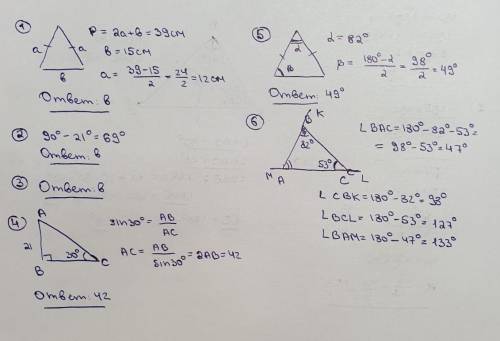 1
a a
в
P = 2a+в = 39см
в = 15см
a = 39-15/2 = 24/2 = 12см
Ответ: в
2 90° - 21° = 69°
Ответ: в
3 Ответ: в
4
A
21
B 30° C
sin30° = AB/AC
AC = AB/sin30° = 2AB = 42
Ответ: 42
5
α
β
α = 82°
β = 180°-α/2 = 98°/2 = 49°
Ответ: 49°
6
K
B
82°
53°
M A C L
∠BAC = 180° - 82° - 53° =
= 98° - 53° = 47°
∠CBK = 180° - 82° = 98°
∠BCL = 180° - 53° = 127°
∠BAM = 180° - 47° = 133°